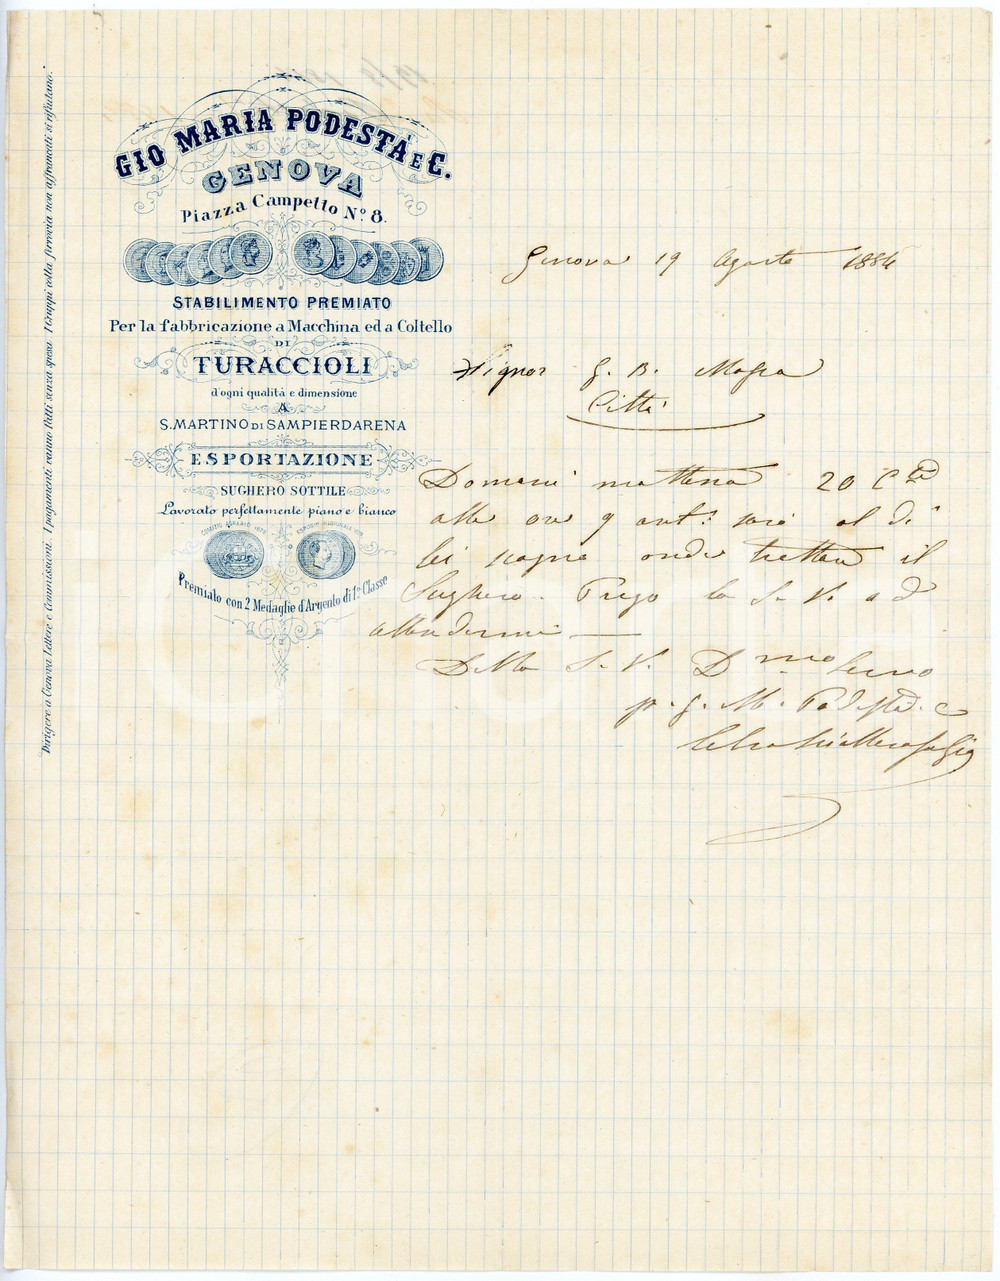 GIO MARIA PODESTÀ E C.
GENOVA
Piazza Campetto Nº 8.
STABILIMENTO PREMIATO
Per la fabbricazione a Macchina ed a Coltello
DI
TURACCIOLI
d'ogni qualità e dimensione
A
S. MARTINO DI SAMPIERDARENA
ESPORTAZIONE
SUGHERO SOTTILE
Lavorato perfettamente piano e bianco
Premiato con 2 Medaglie d'Argento di 1ª Classe
"Dirigere a Genova Lettere e Commissioni. I pagamenti vanno fatti senza spesa. I Gruppi colla ferrovia non affrancati si rifiutano."
Genova 19 Agosto 1884
Signor G. B.
Città
Domani mattina 20 C.te
alle ore 9 ant. sarò al di
Lei sogno onde trattare il
Sughero. Prego la S. V. ad
attendermi —
Della S. V. D.mo Servo
p. G. M. Podestà e C